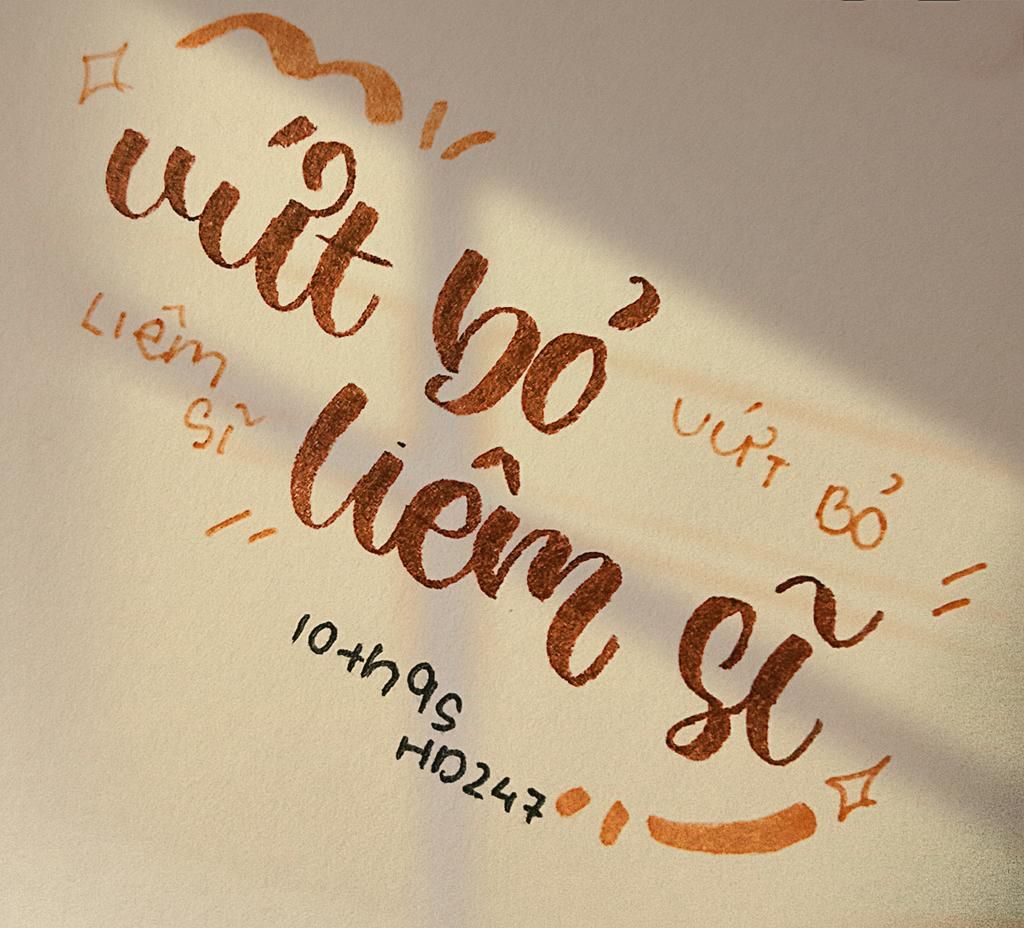 vứt bỏ
liêm sỉ
LIÊM
SĨ
VỨT BỎ
10th95
HD247